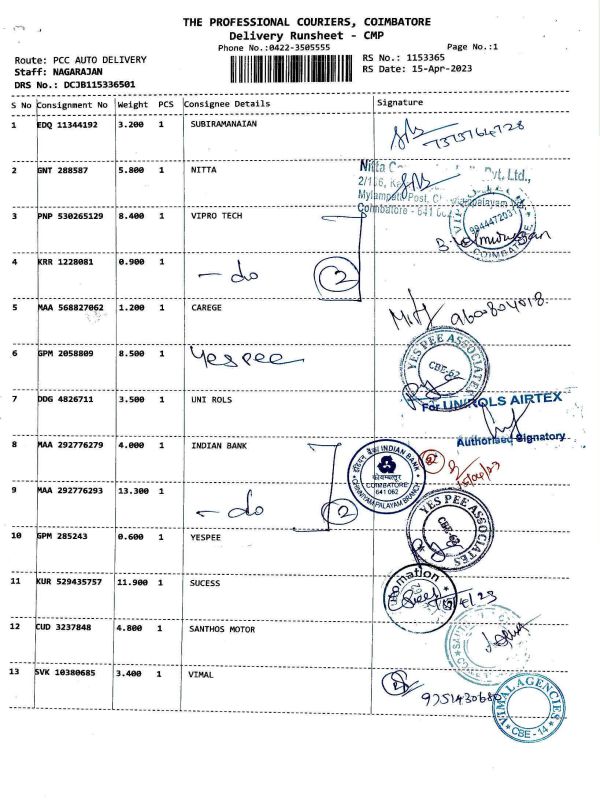 THE PROFESSIONAL COURIERS, COIMBATORE
Delivery Runsheet - CMP
Phone No.:0422-3505555 Page No.:1
Route: PCC AUTO DELIVERY RS No.: 1153365
Staff: NAGARAJAN RS Date: 15-Apr-2023
DRS No.: DCJB115336501
S No Consignment No Weight PCS Consignee Details Signature
1 EDQ 11344192 3.200 1 SUBIRAMANAIAN
2 GNT 288587 5.800 1 NITTA
Nitta Pvt. Ltd.,
Mylampatti Post,
Coimbatore - 641
3 PNP 530265129 8.400 1 VIPRO TECH
VIPRO TECH
9944472031
COIMBATORE
4 KRR 1228081 0.900 1 - do 2
5 MAA 568827062 1.200 1 CAREGE 9600804818.
6 GPM 2058809 8.500 1 Yespee
YES PEE ASSOCIATES
CBE-62
7 DDG 4826711 3.500 1 UNI ROLS
For UNIROLS AIRTEX
Authorised Signatory
8 MAA 292776279 4.000 1 INDIAN BANK
इंडियन बैंक INDIAN BANK
कोयम्बत्तूर
COIMBATORE
641 062
CHINNIYAMPALAYAM BRANCH
15/04/23
9 MAA 292776293 13.300 1 - do 2
10 GPM 285243 0.600 1 YESPEE
YES PEE ASSOCIATES
CBE-62
11 KUR 529435757 11.900 1 SUCESS
omation
12 CUD 3237848 4.800 1 SANTHOS MOTOR
13 SVK 10380685 3.400 1 VIMAL
9751430680
VIMAL AGENCIES
CBE - 14